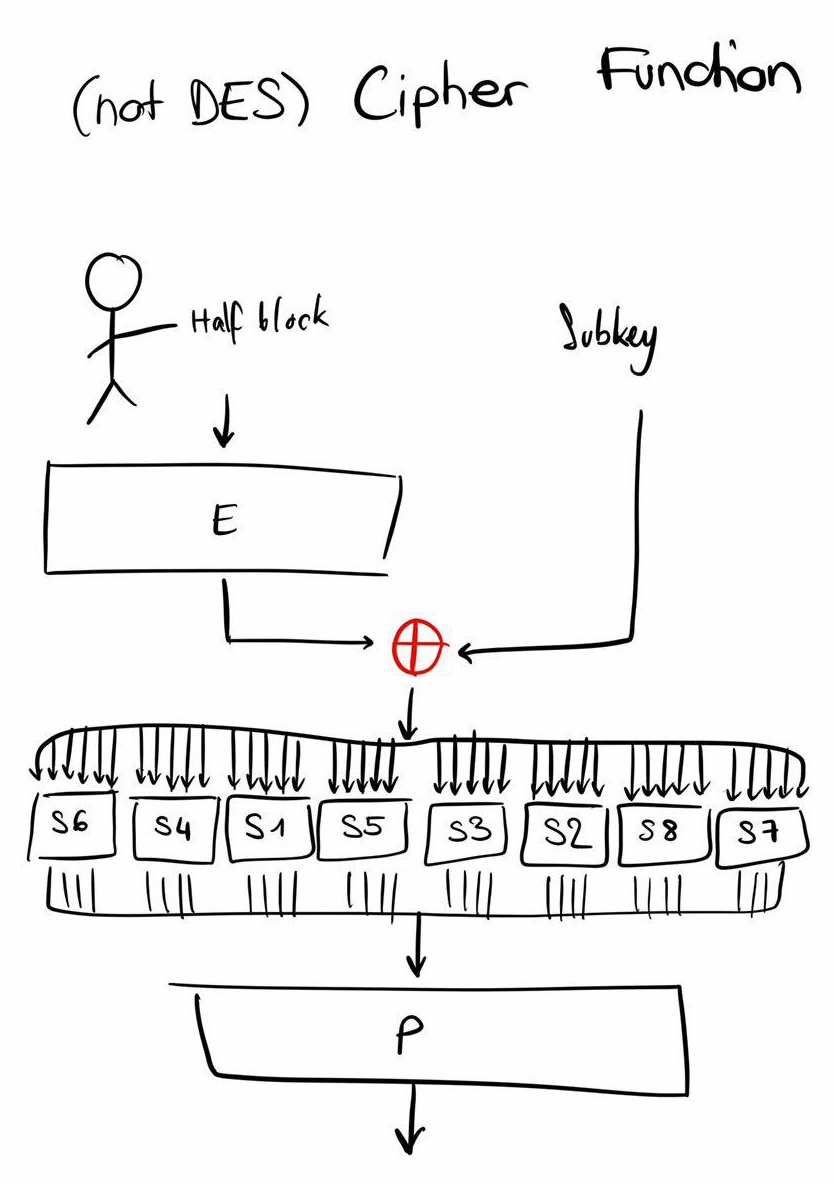 (not DES) Cipher Function
Half block
Subkey
E
S6 S4 S1 S5 S3 S2 S8 S7
P